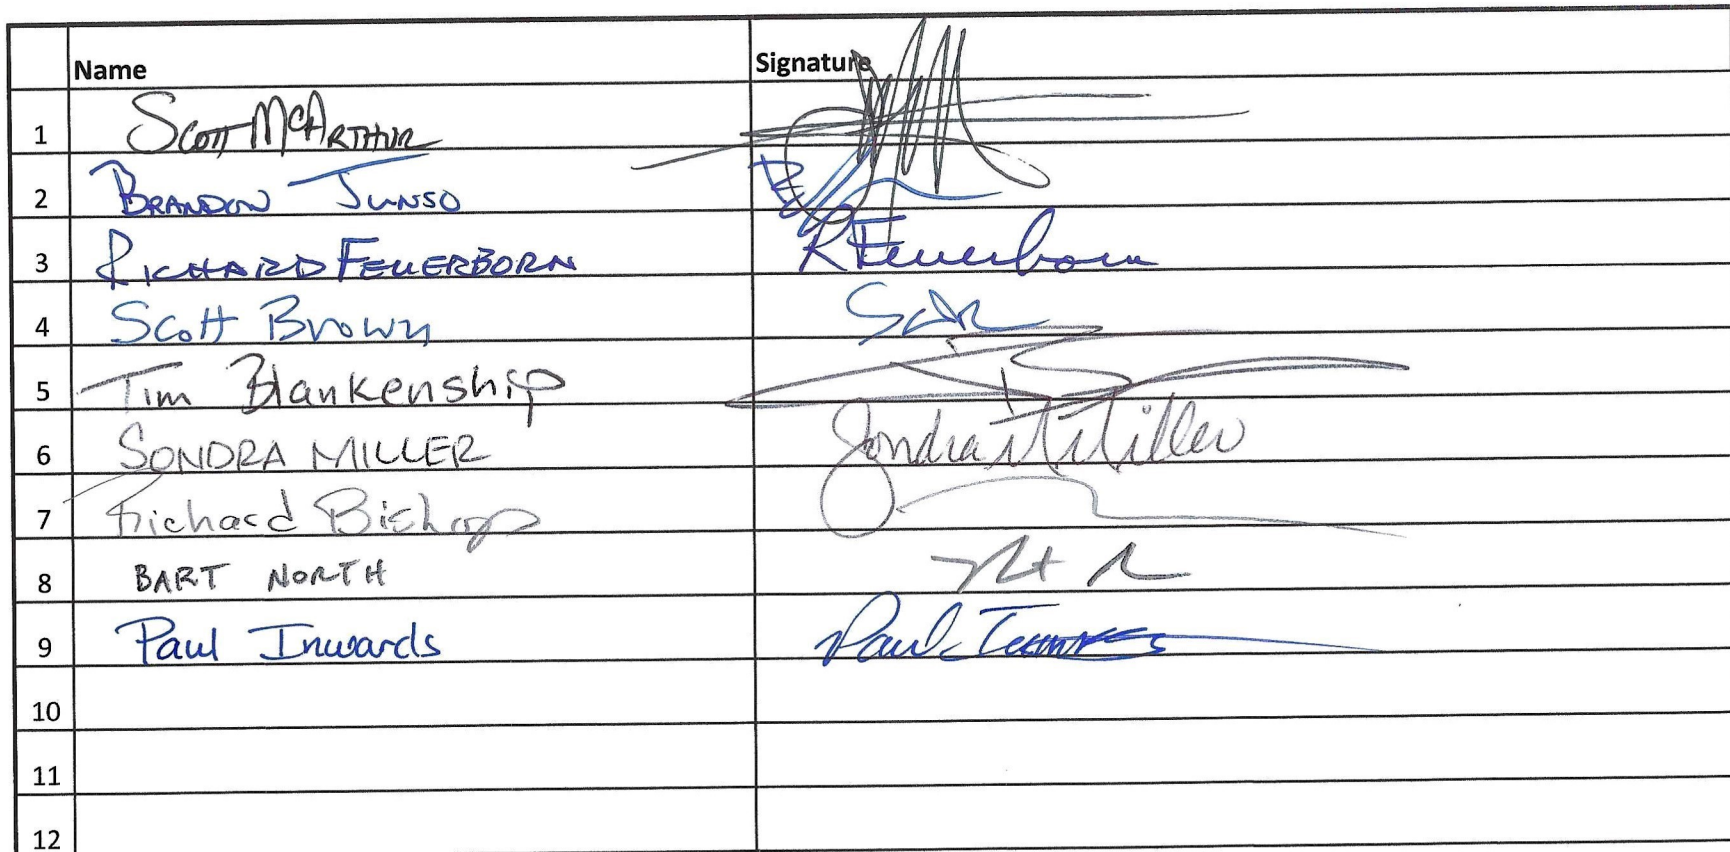 Name Signature
1 Scott McArthur
2 BRANDON JUNSO
3 RICHARD FEUERBORN RFeuerborn
4 Scott Brown
5 Tim Blankenship
6 SONDRA MILLER Sondra M Miller
7 Richard Bishop
8 BART NORTH
9 Paul Inwards Paul
10
11
12